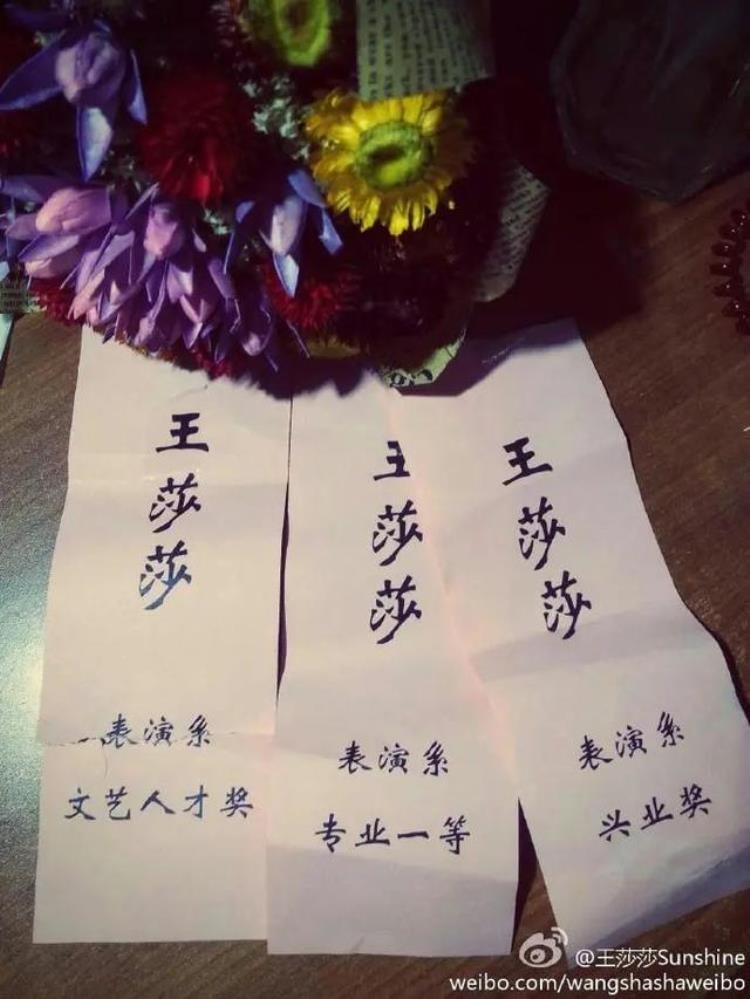 王
莎
莎
表演系
文艺人才奖
王
莎
莎
表演系
专业一等
王
莎
莎
表演系
兴业奖
@王莎莎Sunshine
weibo.com/wangshashaweibo